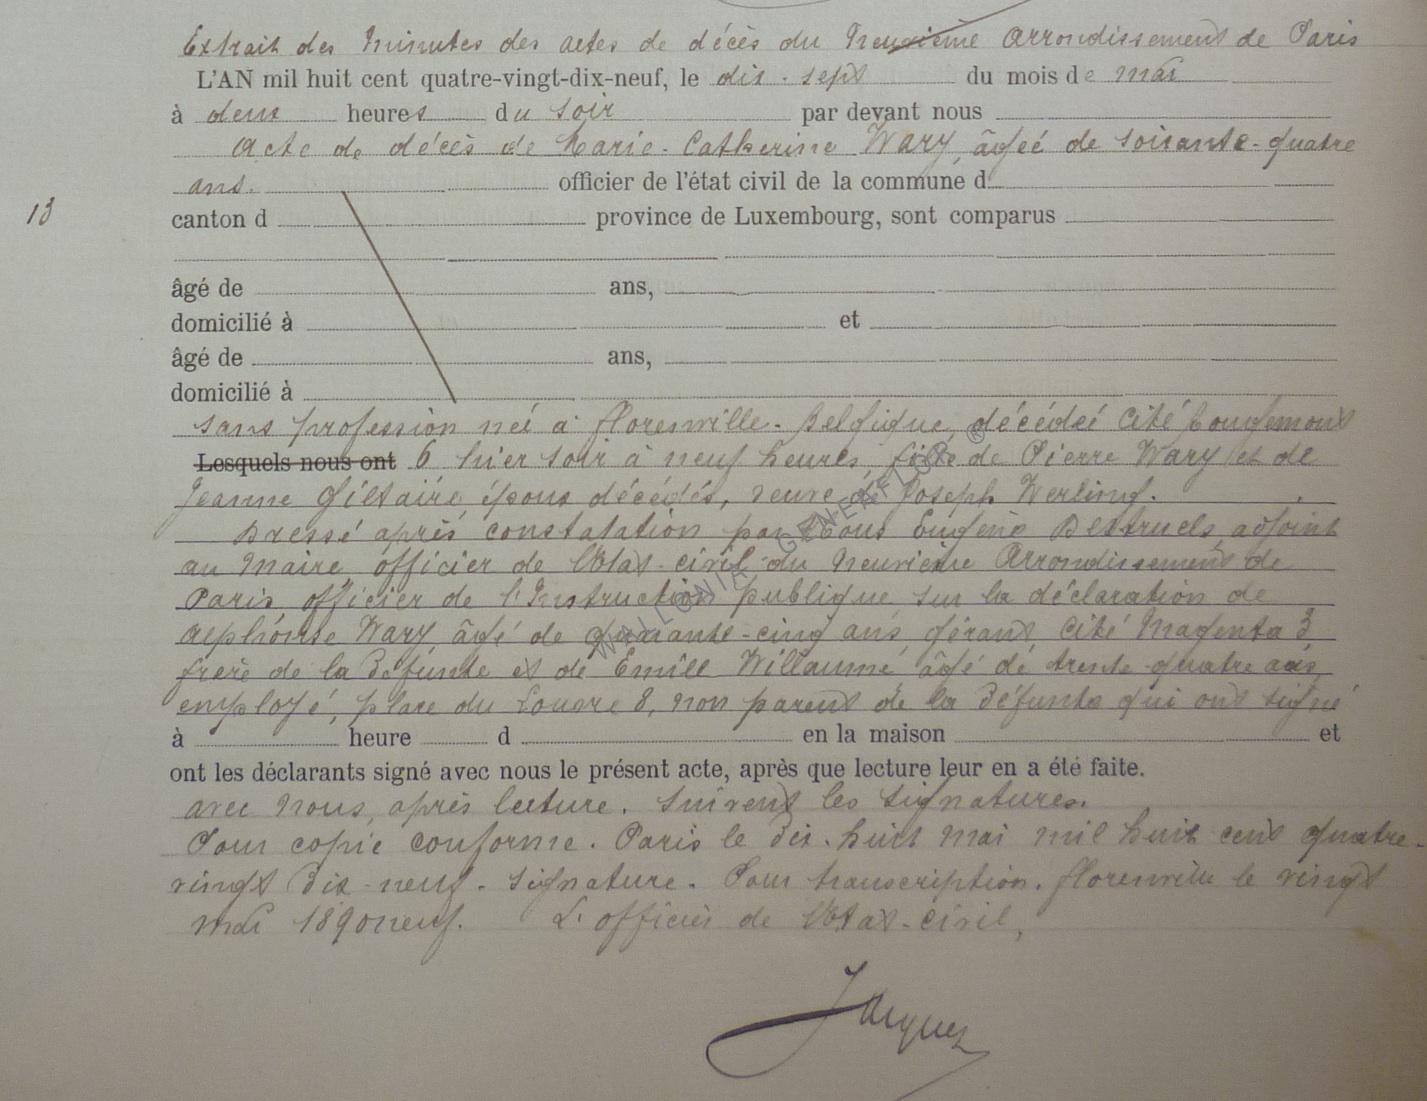 Extrait des Minutes des actes de décès du Neuvième Arrondissement de Paris
L'AN mil huit cent quatre-vingt-dix-neuf, le dix-sept du mois de mai
à deux heures du soir par devant nous
Acte de décès de Marie-Catherine Wary, âgée de soixante-quatre
ans. officier de l'état civil de la commune d
13
canton d province de Luxembourg, sont comparus
âgé de ans,
domicilié à et
âgé de ans,
domicilié à
sans profession née à Florenville-Belgique, décédée Cité Rougemont
Lesquels nous ont 6 hier soir à neuf heures, fille de Pierre Wary et de
Jeanne Giltaire, époux décédés, veuve de Joseph Werling.
Dressé après constatation par Nous Eugène adjoint
au Maire officier de l'Etat-civil du Neuvième Arrondissement de
Paris, officier de l'Instruction publique, sur la déclaration de
Alphonse Wary, âgé de quarante-cinq ans, gérant Cité Magenta 3
frère de la Défunte et de Emile Willaume, âgé de trente-quatre ans,
employé, place du Louvre 8, non parent de la Défunte qui ont signé
à heure d en la maison et
ont les déclarants signé avec nous le présent acte, après que lecture leur en a été faite.
avec Nous, après lecture. Suivent les Signatures.
Pour copie conforme. Paris le dix-huit mai mil huit cent quatre-
vingt Dix-neuf. Signature. Pour transcription. Florenville le vingt
mai 1890neuf. L'officier de l'Etat-civil,
Jacques
WALLONIA GENEAFLOR ®